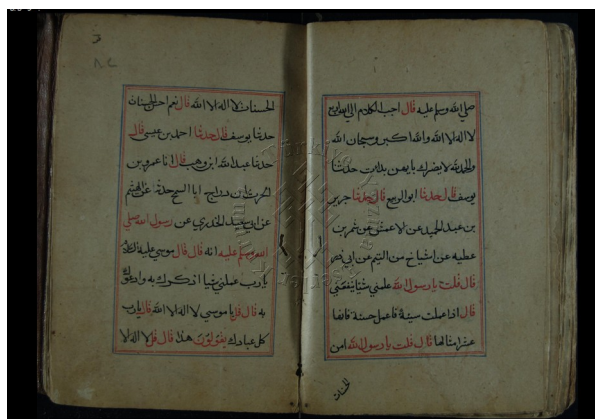 صلى الله وسلم عليه قال احب الكلام الى الله اربع
لا اله الا الله والله اكبر وسبحان الله
والحمد لله لا يضرك بايهن بدات حدثنا
يوسف قال حدثنا ابو الربيع قال حدثنا جرير
بن عبد الحميد عن الاعمش عن شمر بن
عطيه عن اشياخ من التيم عن ابي ذر
قال قلت يا رسول الله علمني شيئا ينفعني
قال اذا عملت سيئة فاعمل حسنة فانها
عشر امثالها قال قلت يا رسول الله امن
الحسنات
الحسنات لا اله الا الله قال نعم احسن الحسنات
حدثنا يوسف قال حدثنا احمد بن عيسى قال
حدثنا عبد الله ابن وهب قال انا عمرو بن
الحرث ان دراج ابا السمح حدثه عن الهيثم
عن ابي سعيد الخدري عن رسول الله صلى
الله وسلم عليه انه قال قال موسى عليه
يا رب علمني شيا اذكرك به وادعوك
به قال قل يا موسى لا اله الا الله قال يا رب
كل عبادك يقولون هذا قال قل لا اله الا